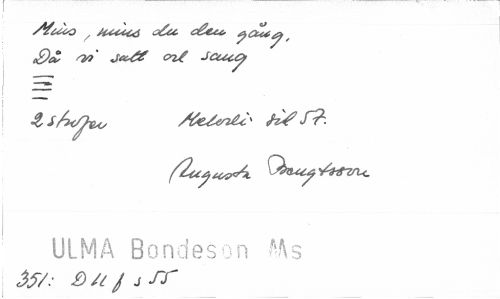 Mins, mins du den gång,
Då vi satt och sang
2 strofer Melodi sid 57.
Augusta Bengtsson
ULMA Bondeson Ms
351: D II f s 55